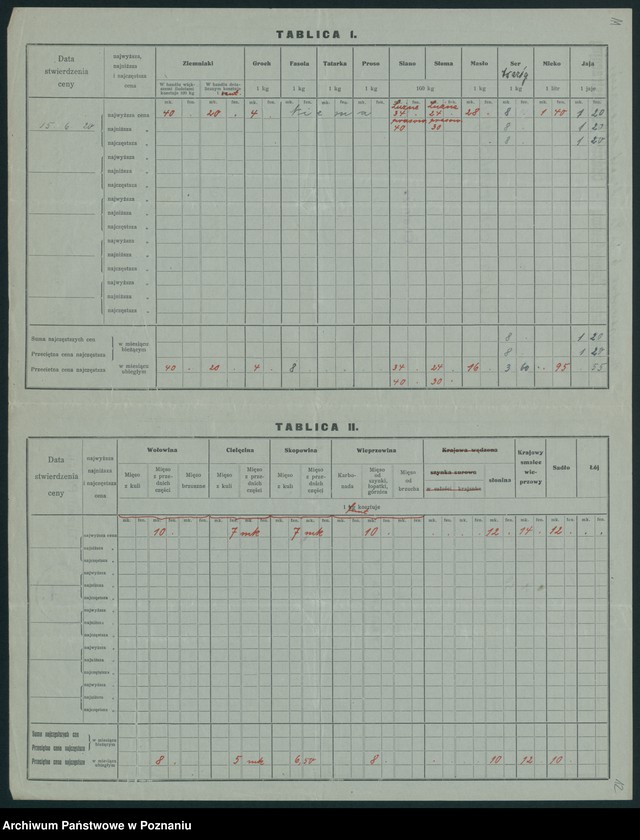 TABLICA I.
Data stwierdzenia ceny
najwyższa, najniższa i najczęstsza cena
Ziemniaki
Groch
Fasola
Tatarka
Proso
Siano
Słoma
Masło
Ser
twaróg
Mleko
Jaja
1 kg
1 kg
1 kg
1 kg
100 kg
1 kg
1 kg
1 litr
1 jaje
najwyższa cena 40 20 4 Niema 34 24 28 8 1 40 1 20
15 6 20 najniższa „ 40 30 8 1 20
najczęstsza „ 8 1 20
najwyższa „
najniższa „
najczęstsza „
najwyższa „
najniższa „
najczęstsza „
najwyższa „
najniższa „
najczęstsza „
najwyższa „
najniższa „
najczęstsza „
Suma najczęstszych cen 8 1 20
Przeciętna cena najczęstsza w miesiącu bieżącym 8 1 20
Przeciętna cena najczęstsza w miesiącu ubiegłym 40 20 4 8 34 24 16 3 60 95 55
40 30
TABLICA II.
Data stwierdzenia ceny
najwyższa, najniższa i najczęstsza cena
Wołowina
Cielęcina
Skopowina
Wieprzowina
Krajowa wędzona
szynka surowa
słonina
Krajowy smalec wieprzowy
Sadło
Łój
Mięso z kuli
Mięso z przednich części
Mięso brzuszne
Mięso z kuli
Mięso z przednich części
Mięso z kuli
Mięso z przednich części
Karbonada
Mięso od szynki, łopatki, górnica
Mięso od brzucha
kosztuje
najwyższa cena 10 7 mk 7 mk 10 12 14 12
najniższa „
najczęstsza „
najwyższa „
najniższa „
najczęstsza „
najwyższa „
najniższa „
najczęstsza „
najwyższa „
najniższa „
najczęstsza „
najwyższa „
najniższa „
najczęstsza „
Suma najczęstszych cen
Przeciętna cena najczęstsza w miesiącu bieżącym
Przeciętna cena najczęstsza w miesiącu ubiegłym 8 5 mk 6,50 8 10 12 10
Archiwum Państwowe w Poznaniu